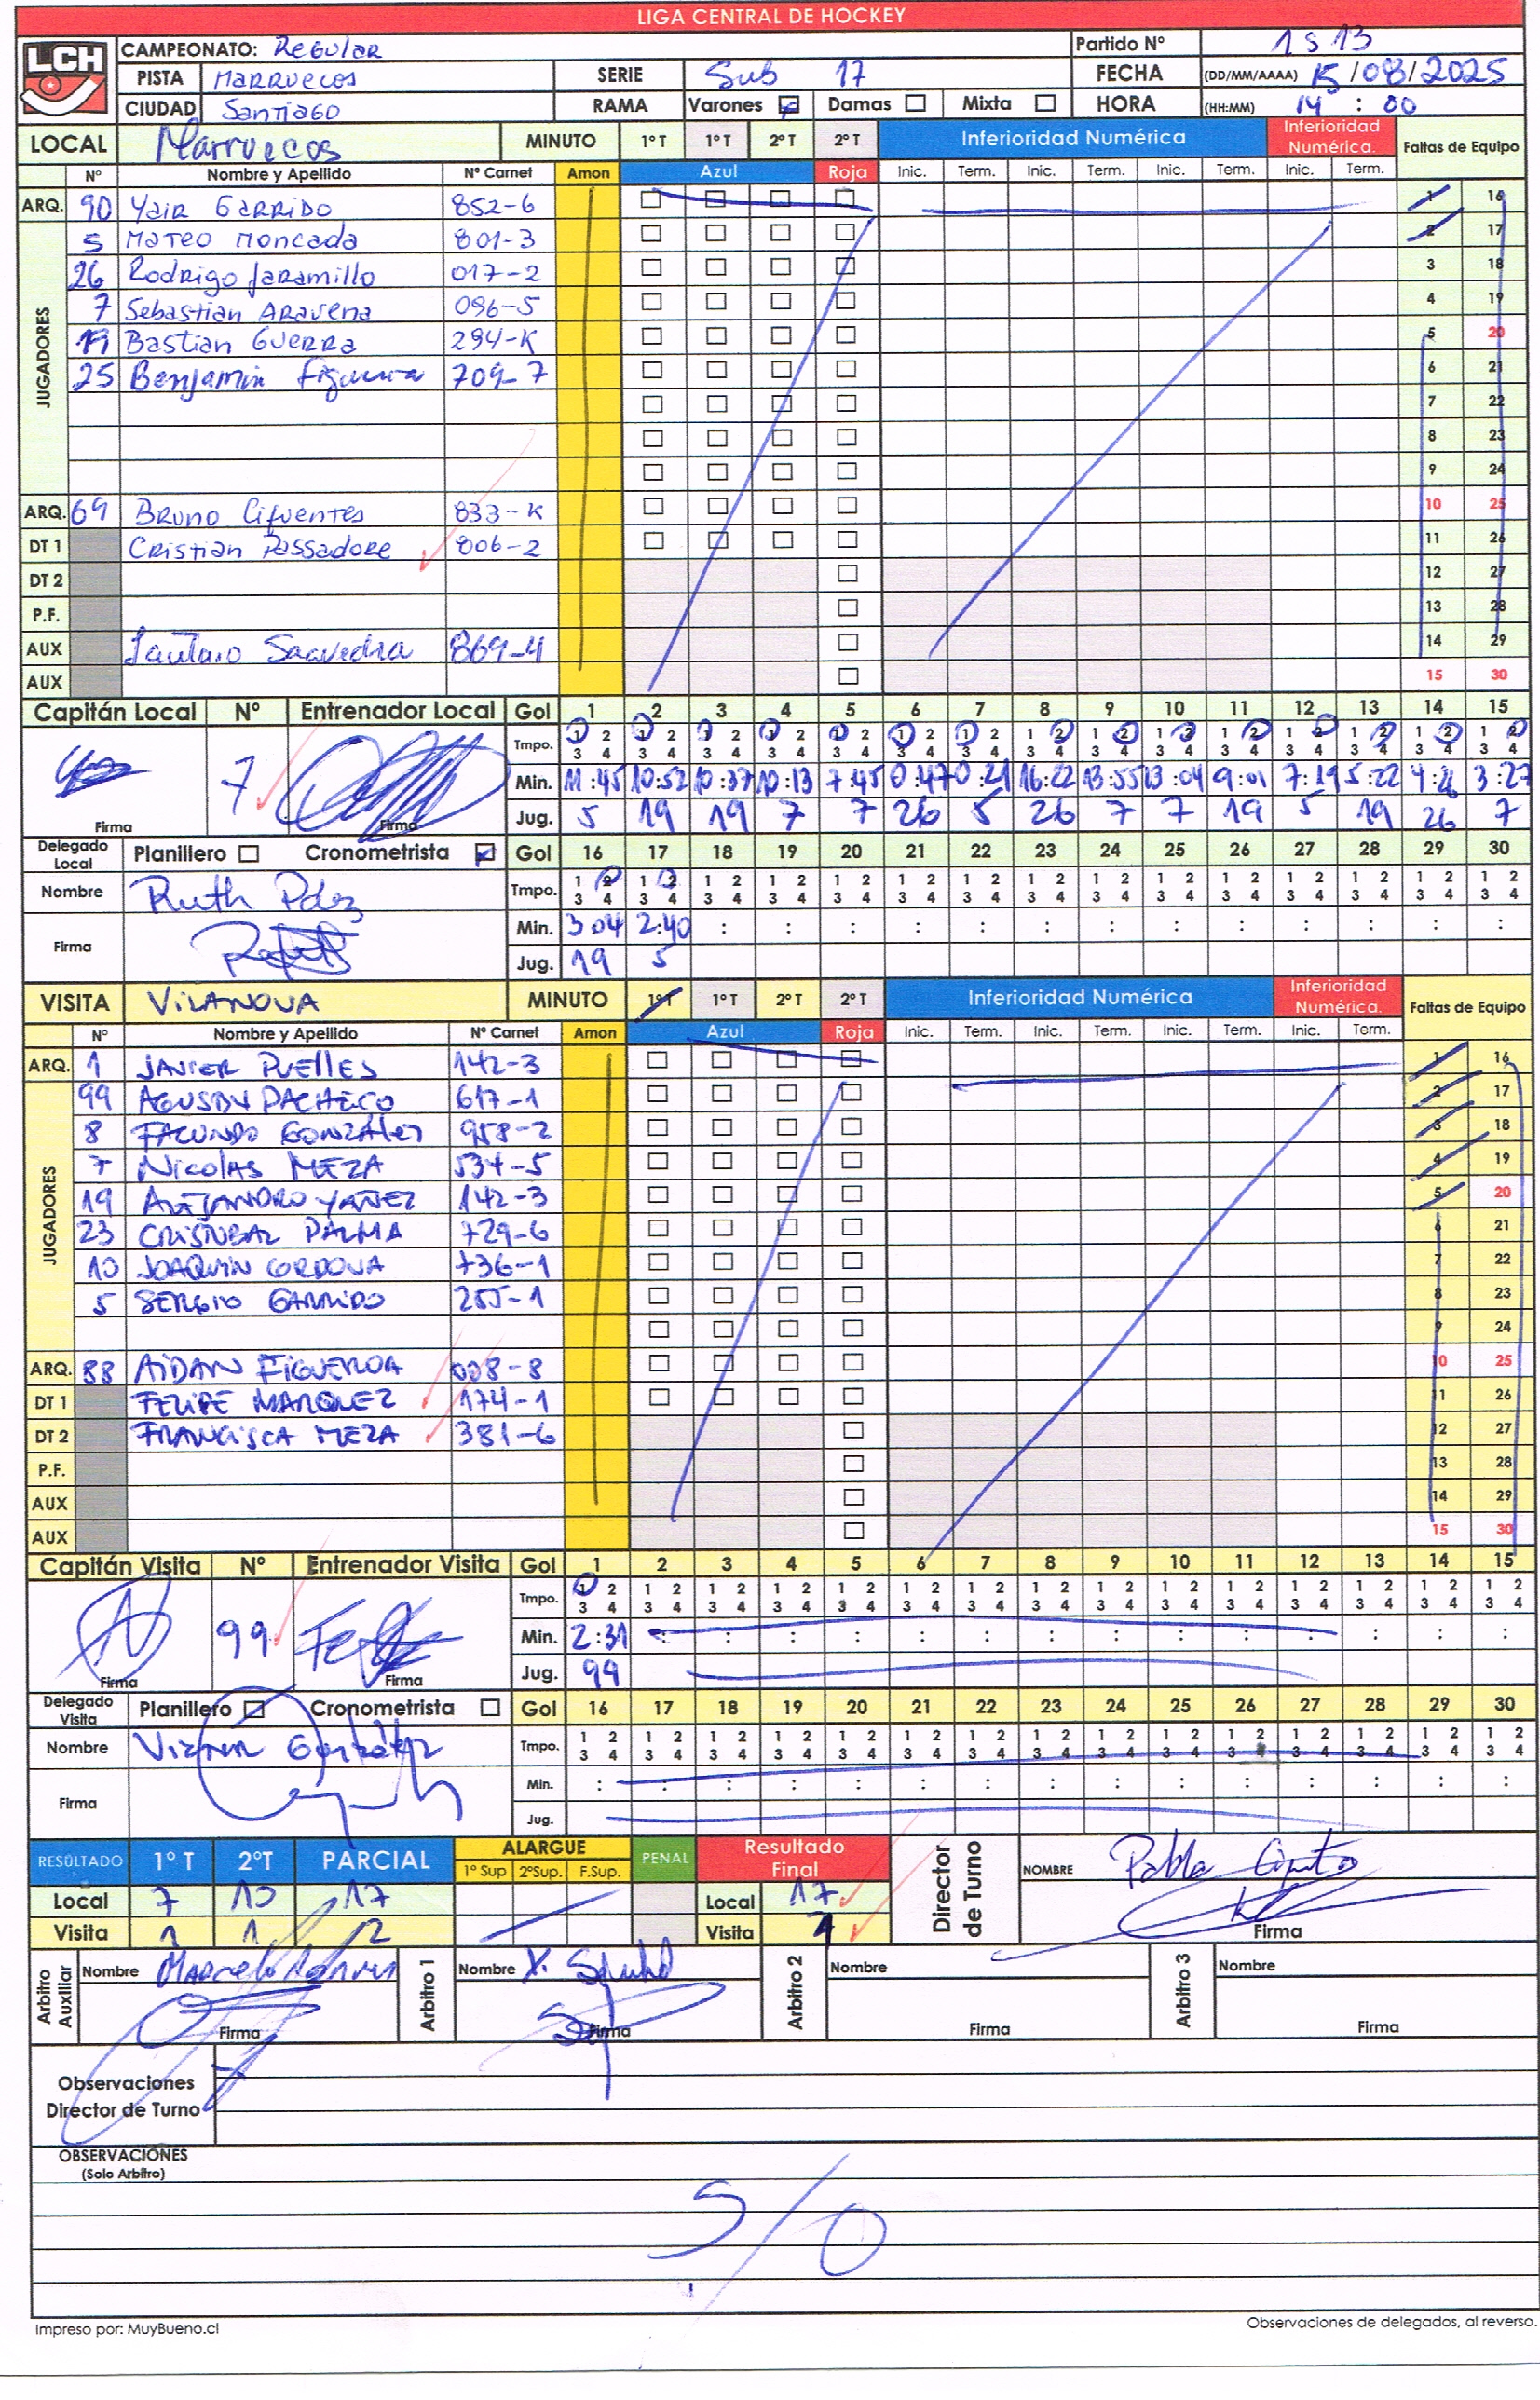 LIGA CENTRAL DE HOCKEY
LCH
CAMPEONATO: Regular Partido Nº 1513
PISTA Marruecos SERIE Sub 17 FECHA (DD/MM/AAAA) 15/08/2025
CIUDAD Santiago RAMA Varones Damas Mixta HORA (HH:MM) 14:00
LOCAL Marruecos MINUTO 1º T 1º T 2º T 2º T Inferioridad Numérica Inferioridad Numérica. Faltas de Equipo
Nº Nombre y Apellido Nº Carnet Amon Azul Roja Inic. Term. Inic. Term. Inic. Term. Inic. Term.
ARQ. 90 Yair Garrido 852-6 1 16
JUGADORES
5 Mateo Moncada 801-3 2 17
26 Rodrigo Jaramillo 017-2 3 18
7 Sebastian Aravena 096-5 4 19
19 Bastian Guerra 294-K 5 20
25 Benjamin Figueroa 709-7 6 21
7 22
8 23
9 24
ARQ. 69 Bruno Cifuentes 833-K 10 25
DT 1 Cristian Passadore 806-2 11 26
DT 2 12 27
P.F. 13 28
AUX Lautaro Saavedra 869-4 14 29
AUX 15 30
Capitán Local Nº Entrenador Local Gol 1 2 3 4 5 6 7 8 9 10 11 12 13 14 15
Tmpo. 1 2 1 2 1 2 1 2 1 2 1 2 1 2 1 2 1 2 1 2 1 2 1 2 1 2 1 2 1 2
3 4 3 4 3 4 3 4 3 4 3 4 3 4 3 4 3 4 3 4 3 4 3 4 3 4 3 4 3 4
7 Min. 11:45 10:52 10:37 10:13 7:45 0:47 0:21 16:22 13:55 13:04 9:01 7:19 5:22 4:26 3:27
Firma Firma Jug. 5 19 19 7 7 26 5 26 7 7 19 5 19 26 7
Delegado Local Planillero Cronometrista Gol 16 17 18 19 20 21 22 23 24 25 26 27 28 29 30
Nombre Ruth Tmpo. 1 2 1 2 1 2 1 2 1 2 1 2 1 2 1 2 1 2 1 2 1 2 1 2 1 2 1 2 1 2
3 4 3 4 3 4 3 4 3 4 3 4 3 4 3 4 3 4 3 4 3 4 3 4 3 4 3 4 3 4
Firma Min. 3:04 2:40 : : : : : : : : : : : : :
Jug. 19 5
VISITA VILANOVA MINUTO 1º T 1º T 2º T 2º T Inferioridad Numérica Inferioridad Numérica. Faltas de Equipo
Nº Nombre y Apellido Nº Carnet Amon Azul Roja Inic. Term. Inic. Term. Inic. Term. Inic. Term.
ARQ. 1 JAVIER PUELLES 142-3 1 16
JUGADORES
99 AGUSTIN PACHECO 617-1 2 17
8 FACUNDO GONZALEZ 958-2 3 18
7 NICOLAS MEZA 534-5 4 19
19 ALEJANDRO YAÑEZ 142-3 5 20
23 CRISTOBAL PALMA 729-6 6 21
10 JOAQUIN CORDOVA 736-1 7 22
5 SERGIO GARRIDO 255-1 8 23
9 24
ARQ. 88 AIDAN FIGUEROA 008-8 10 25
DT 1 FELIPE MARQUEZ 174-1 11 26
DT 2 FRANCISCA MEZA 381-6 12 27
P.F. 13 28
AUX 14 29
AUX 15 30
Capitán Visita Nº Entrenador Visita Gol 1 2 3 4 5 6 7 8 9 10 11 12 13 14 15
Tmpo. 1 2 1 2 1 2 1 2 1 2 1 2 1 2 1 2 1 2 1 2 1 2 1 2 1 2 1 2 1 2
3 4 3 4 3 4 3 4 3 4 3 4 3 4 3 4 3 4 3 4 3 4 3 4 3 4 3 4 3 4
99 Min. 2:31 : : : : : : : : : : : : : :
Firma Firma Jug. 99
Delegado Visita Planillero Cronometrista Gol 16 17 18 19 20 21 22 23 24 25 26 27 28 29 30
Nombre Tmpo. 1 2 1 2 1 2 1 2 1 2 1 2 1 2 1 2 1 2 1 2 1 2 1 2 1 2 1 2 1 2
3 4 3 4 3 4 3 4 3 4 3 4 3 4 3 4 3 4 3 4 3 4 3 4 3 4 3 4 3 4
Firma Min. : : : : : : : : : : : : : : :
Jug.
RESULTADO 1º T 2ºT PARCIAL ALARGUE 1º Sup 2ºSup. F.Sup. PENAL Resultado Final Director de Turno NOMBRE Pablo
Local 7 10 17 Local 17
Visita 1 1 2 Visita Firma
Arbitro Auxiliar Nombre Marcelo Arbitro 1 Nombre Arbitro 2 Nombre Arbitro 3 Nombre
Firma Firma Firma Firma
Observaciones
Director de Turno
OBSERVACIONES
(Solo Arbitro)
S/O
Impreso por: MuyBueno.cl Observaciones de delegados, al reverso.